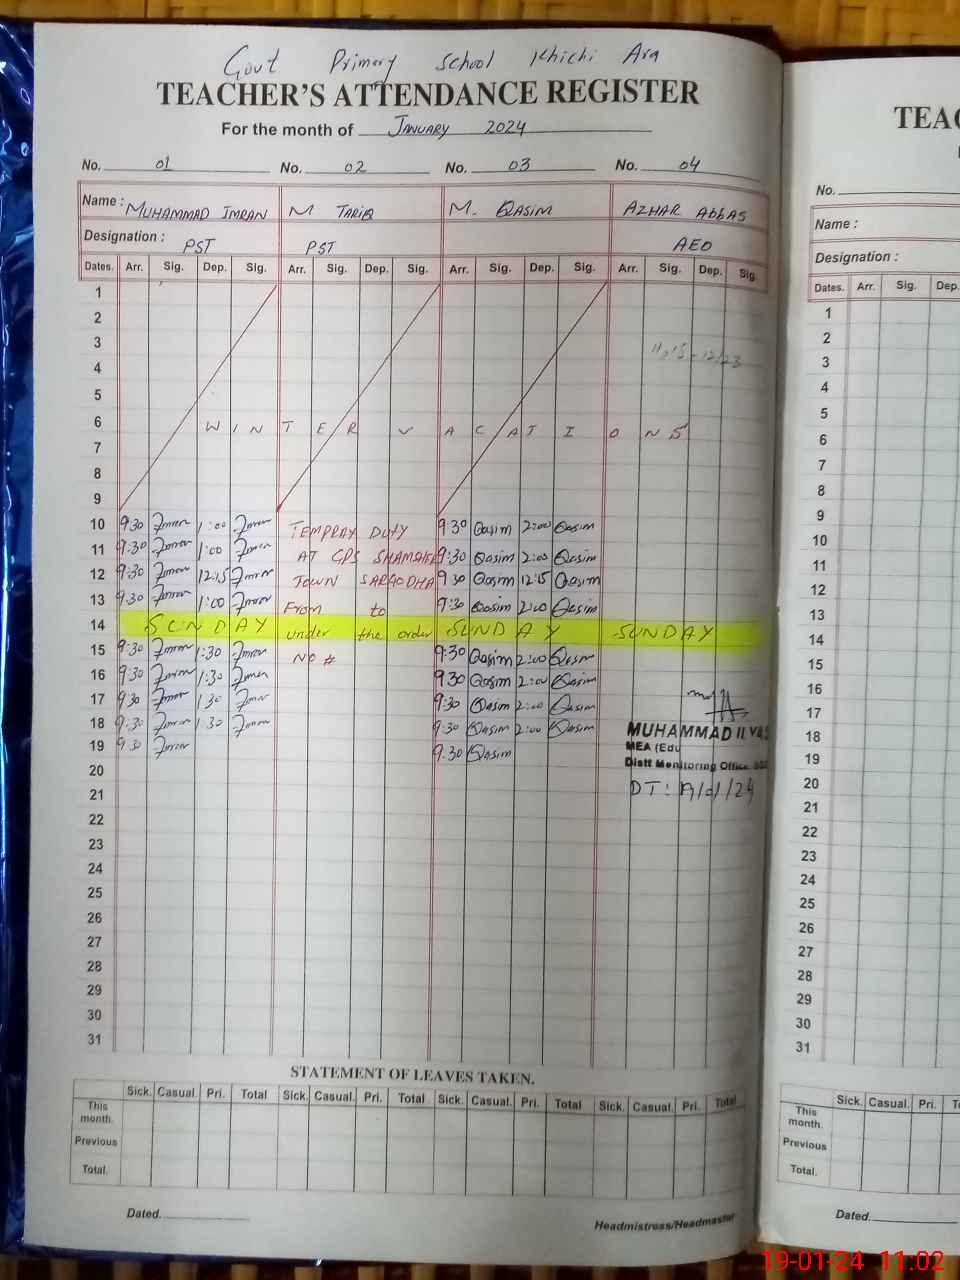 Govt Primary School Khichi Ara
TEACHER'S ATTENDANCE REGISTER
For the month of JANUARY 2024
No. 01 No. 02 No. 03 No. 04
Name : MUHAMMAD IMRAN M TARIQ M. QASIM AZHAR ABBAS
Designation : PST PST AEO
Dates. Arr. Sig. Dep. Sig. Arr. Sig. Dep. Sig. Arr. Sig. Dep. Sig. Arr. Sig. Dep. Sig.
1
2
3
4
5
6 WINTER VACATIONS
7
8
9
10 9:30 Imran 1:00 Imran TEMPRAY DUTY 9:30 Qasim 2:00 Qasim
11 9:30 Imran 1:00 Imran AT GPS 9:30 Qasim 2:00 Qasim
12 9:30 Imran 12:15 Imran TOWN SARGODHA 9:30 Qasim 12:15 Qasim
13 9:30 Imran 1:00 Imran From to 9:30 Qasim 2:00 Qasim
14 SUNDAY under the order SUNDAY SUNDAY
15 9:30 Imran 1:30 Imran NO # 9:30 Qasim 2:00 Qasim
16 9:30 Imran 1:30 Imran 9:30 Qasim 2:00 Qasim
17 9:30 Imran 1:30 Imran 9:30 Qasim 2:00 Qasim
18 9:30 Imran 1:30 Imran 9:30 Qasim 2:00 Qasim
19 9:30 Imran 9:30 Qasim
20
21
22
23
24
25
26
27
28
29
30
31
MUHAMMAD
MEA (Edu
Distt Monitoring Office
DT: 19/01/24
STATEMENT OF LEAVES TAKEN.
Sick. Casual. Pri. Total Sick. Casual. Pri. Total Sick. Casual. Pri. Total Sick. Casual. Pri. Total
This month.
Previous
Total.
Dated.
Headmistress/Headmaster
TEAC
No.
Name :
Designation :
Dates. Arr. Sig. Dep.
1
2
3
4
5
6
7
8
9
10
11
12
13
14
15
16
17
18
19
20
21
22
23
24
25
26
27
28
29
30
31
Sick. Casual. Pri.
This month.
Previous
Total.
Dated.
19-01-24 11:02